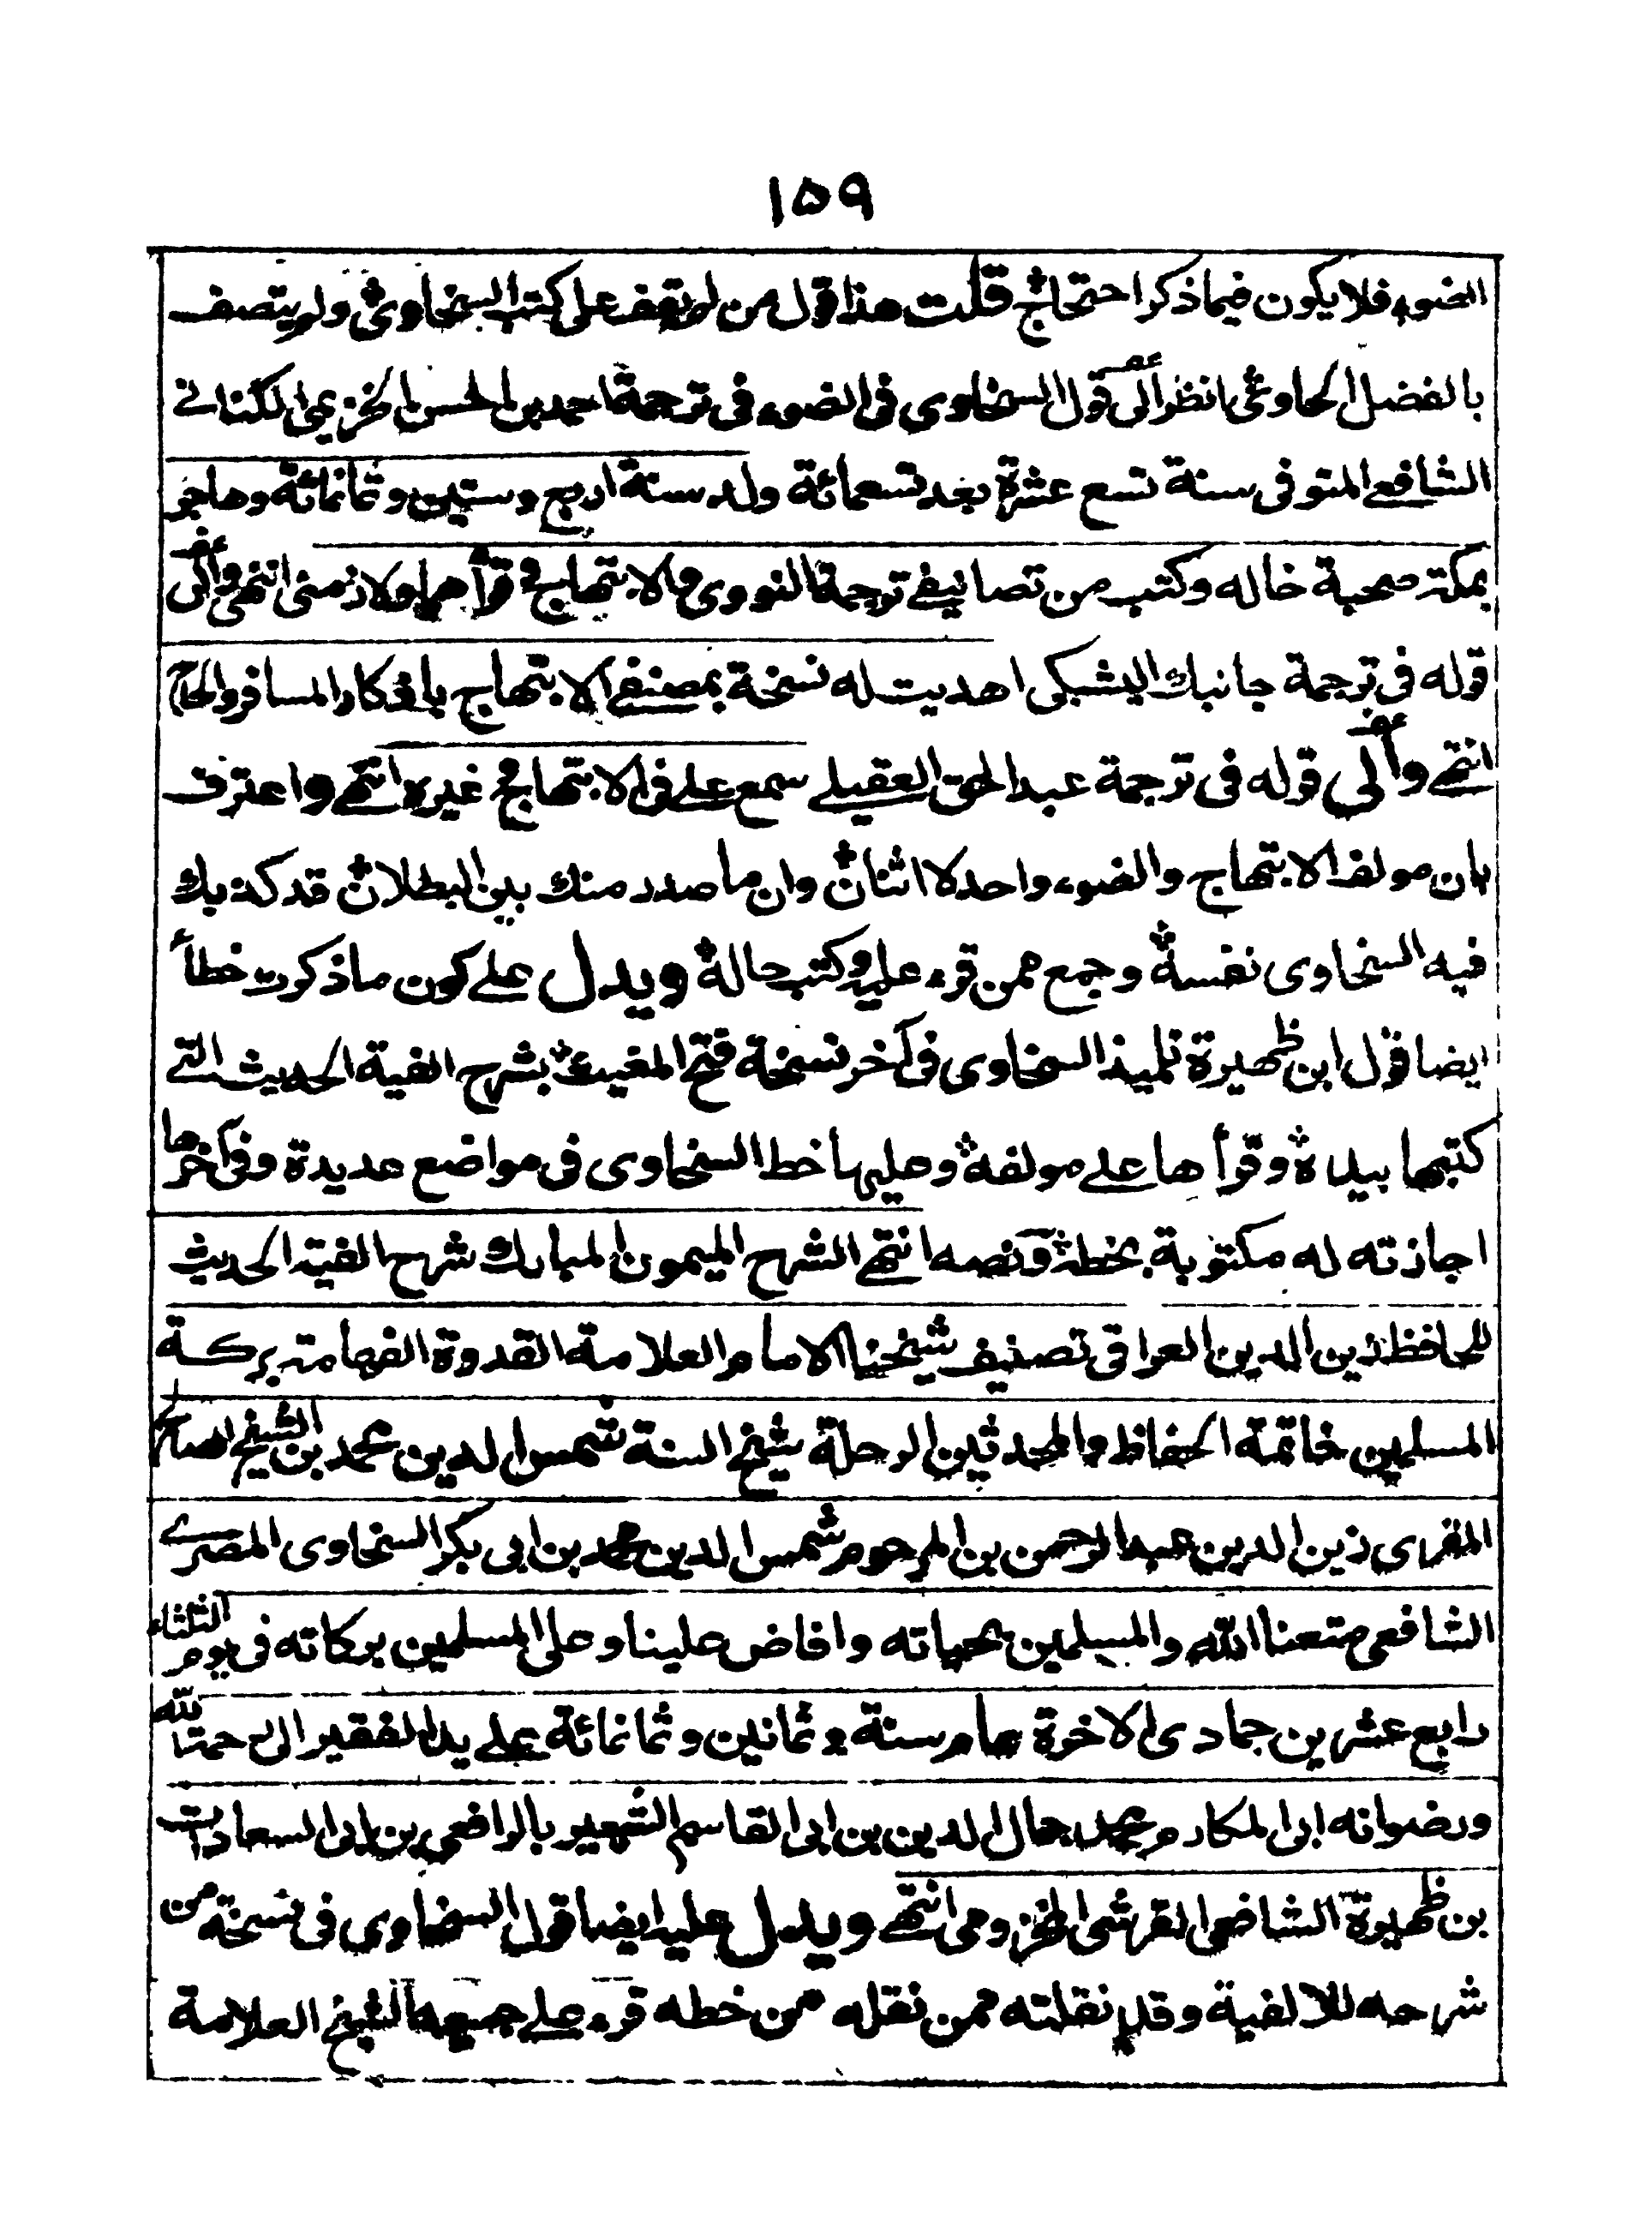 ١٥٩
الضوء فلا يكون فيما ذكر احتجاج قلت هذا قول من لم يقف على كتب السخاوي ولم يتصف
بالفضل الحاوي انظر الى قول السخاوى فى الضوء فى ترجمة احمد بن الحسن الكنانے
الشافعے المتوفى سنة تسع عشرة بعد تسعمائة ولد سنة اربع وستين وثمانمائة وهاجر
بمكة صحبة خاله وكتب من تصانيفے ترجمة النووى والابتهاج وقرأهما ولازمنى انتهى والى
قوله فى ترجمة جانبك اليشبكى اهديت له نسخة بمصنفے الابتهاج باذكار المسافر الحاج
انتهے وألى قوله فى ترجمة عبد الحق العقيلے سمع علے فى الابتهاج غيره انتهے واعترف
بان مولف الابتهاج والضوء واحد لا اثنان وان ما صدر منك بين البطلان قد كذبك
فيه السخاوى نفسه وجمع ممن قرء عليه وكتب حاله ويدل علے كون ما ذكرت خطأ
ايضا قول ابن ظهيرة تلميذ السخاوى فى آخر نسخة فتح المغيث بشرح الفية الحديث التے
كتبها بيده وقرأها علے مولفه وعليها خط السخاوى فى مواضع عديدة وفى آخرها
اجازته له مكتوبة بخطه ونصه انتهے الشرح الميمون المبارك شرح الفية الحديث
للحافظ زين الدين العراقى تصنيف شيخنا الامام العلامة القدوة الفهامة بركة
المسلمين خاتمة الحفاظ والمحدثين الرحلة شيخ السنة شمس الدين محمد بن الشيخ الصالح
المقرى زين الدين عبد الرحمن بن المرحوم شمس الدين محمد بن ابى بكر السخاوى المصرے
الشافعى متعنا الله والمسلمين بحياته وافاض علينا وعلى المسلمين بركاته فى يوم الثلثاء
رابع عشرين جمادى الاخرة عام سنة وثمانين وثمانمائة علے يد الفقير الى رحمة الله
ورضوانه ابى المكارم محمد جمال الدين بن ابى القاسم الشهير بالرافعى بن ابى السعادات
بن ظهيرة الشافعى القرشى المخزومى انتهے ويدل عليه ايضا قول السخاوى فى نسخة من
شرحه للالفية وقد نقلته ممن نقله من خطه قرء علے جميعه الشيخ العلامة